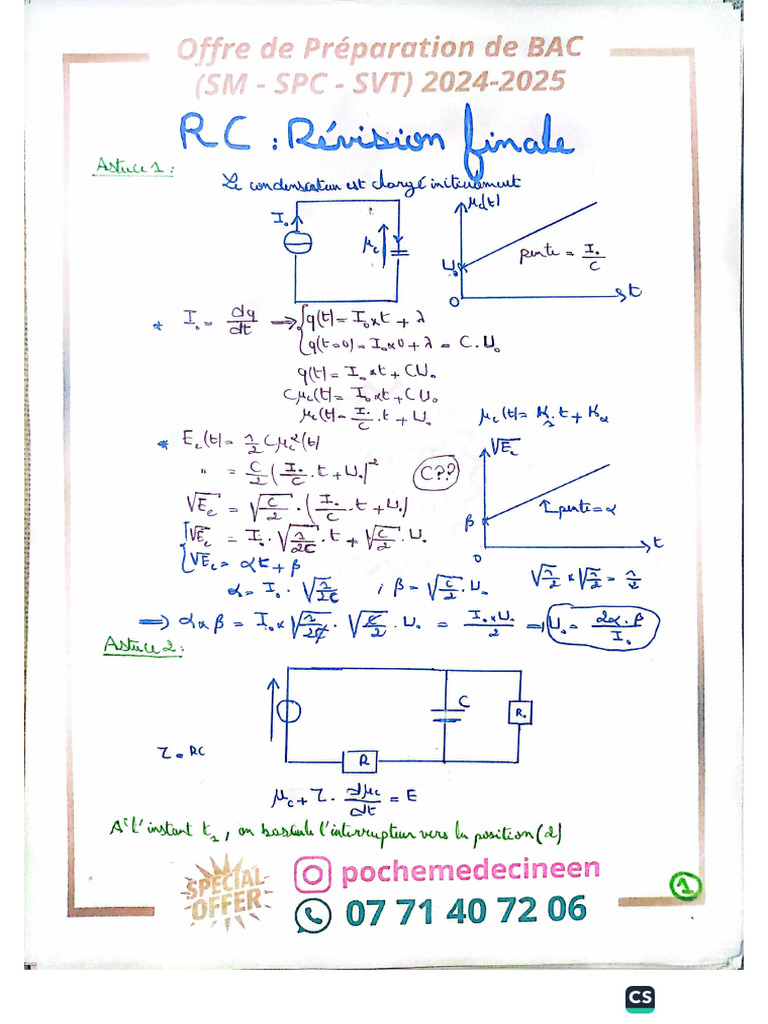 Offre de Préparation de BAC
(SM - SPC - SVT) 2024-2025
RC : Révision finale
Astuce 1 :
Le condensateur est chargé initialement
I₀
μc
μc(t)
U₀
pente = I₀/C
0
t
* I₀ = dq/dt => { q(t) = I₀ x t + λ
q(t=0) = I₀ x 0 + λ = C.U₀
q(t) = I₀ x t + CU₀
Cμc(t) = I₀ x t + CU₀
μc(t) = I₀/C . t + U₀
μc(t) = K₁.t + K₂
* Ec(t) = 1/2 Cμc²(t)
" = C/2 (I₀/C . t + U₀)²
C??
√Ec
√Ec = √(C/2) . (I₀/C . t + U₀)
β
pente = α
0
t
{ √Ec = I₀ . √(1/2C) . t + √(C/2) . U₀
√Ec = αt + β
α = I₀ . √(1/2C) ; β = √(C/2) . U₀
√(1/2) x √(1/2) = 1/2
=> α x β = I₀ x √(1/2C) . √(C/2) . U₀ = I₀ x U₀/2 => U₀ = 2α.β/I₀
Astuce 2 :
C
R₀
R
τ = RC
μc + τ . dμc/dt = E
A l'instant t₁, on bascule l'interrupteur vers la position (2)
SPECIAL
OFFER
pochemedecineen
07 71 40 72 06
1
CS